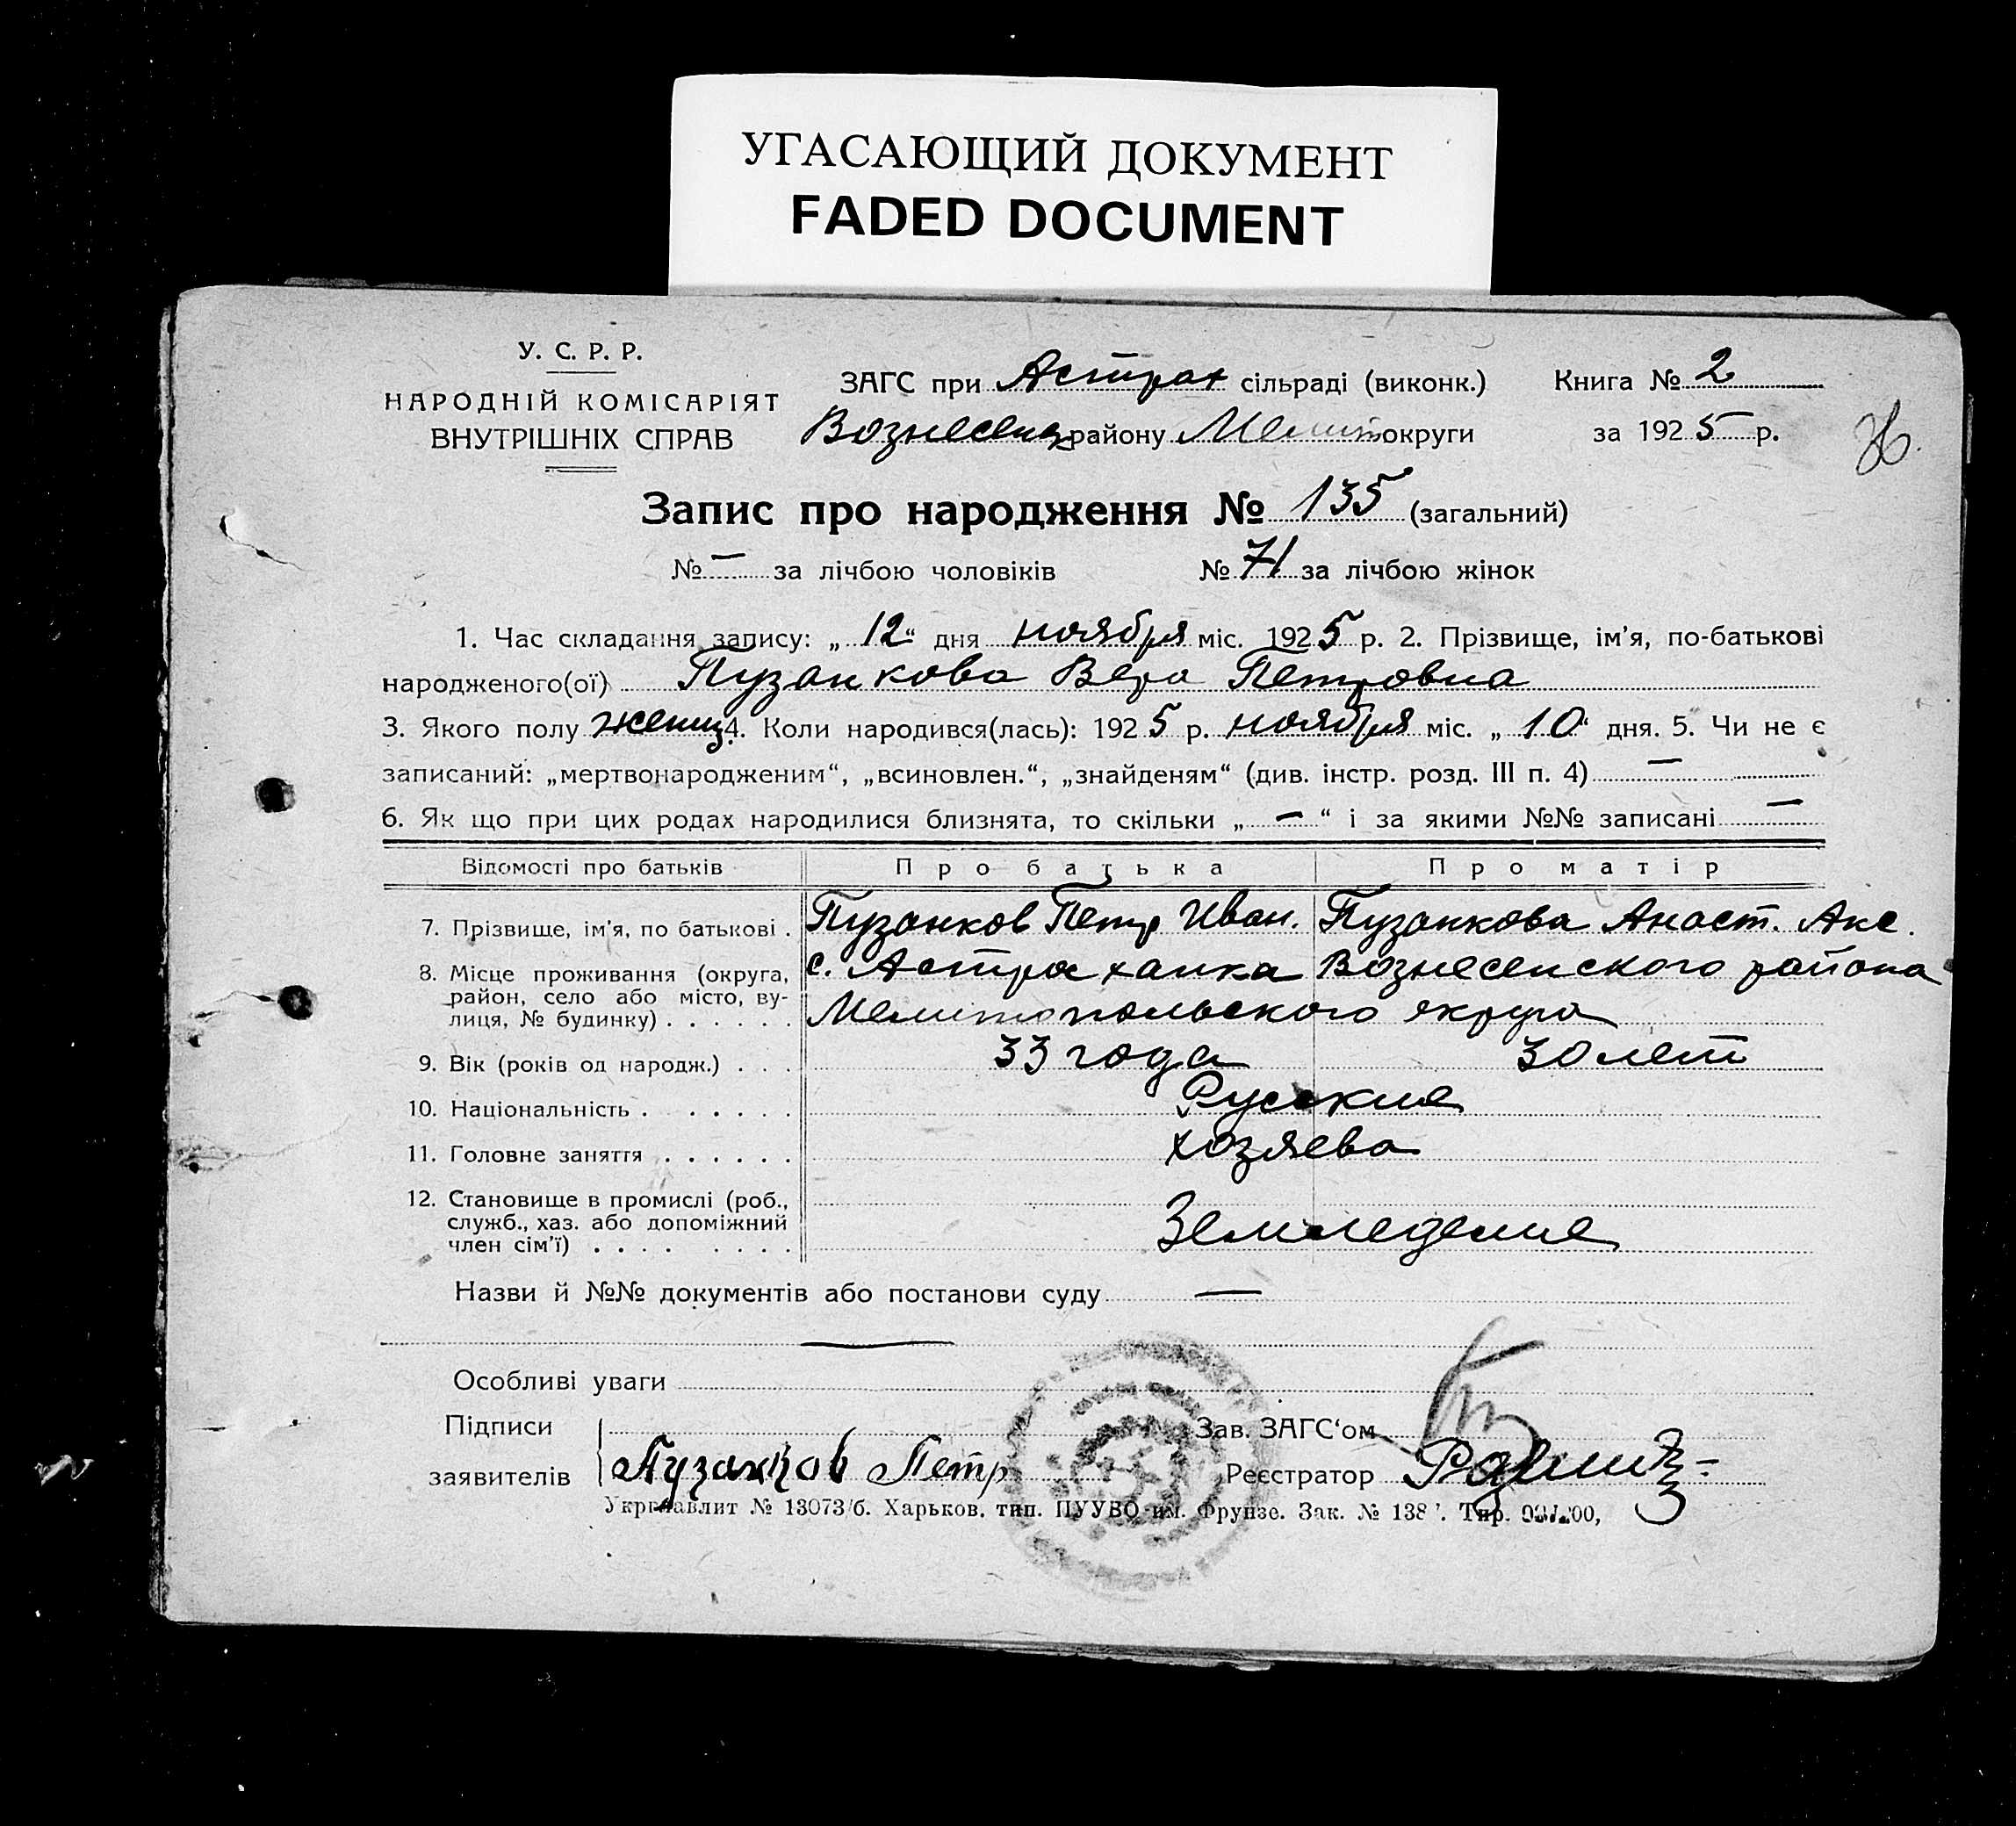 УГАСАЮЩИЙ ДОКУМЕНТ
FADED DOCUMENT
У. С. Р. Р.
НАРОДНІЙ КОМІСАРІЯТ
ВНУТРІШНІХ СПРАВ
ЗАГС при Астрах сільраді (виконк.) Книга № 2
Вознесенк району Мелит округи за 1925 р.
Запис про народження № 135 (загальний)
№ — за лічбою чоловіків № 71 за лічбою жінок
1. Час складання запису: „12“ дня ноября міс. 1925 р. 2. Прізвище, ім’я, по-батькові
народженого(ої) Пузанкова Вера Петровна
3. Якого полу женщ 4. Коли народився(лась): 1925 р. ноября міс. „10“ дня. 5. Чи не є
записаний: „мертвонародженим“, „всиновлен.“, „знайденям“ (див. інстр. розд. III п. 4) —
6. Як що при цих родах народилися близнята, то скільки „—“ і за якими №№ записані —
Відомості про батьків Про батька Про матір
7. Прізвище, ім’я, по батькові . Пузанков Петр Иван. Пузанкова Анаст. Акс.
8. Місце проживання (округа, с. Астраханка Вознесенского района
район, село або місто, ву-
лиця, № будинку) . . . . . . Мелитопольского округа
9. Вік (років од народж.) . . . 33 года 30 лет
10. Національність . . . . . . Русские
11. Головне заняття . . . . . . хозяева
12. Становище в промислі (роб.,
служб., хаз. або допоміжний
член сім’ї) . . . . . . . . Земледелие
Назви й №№ документів або постанови суду —
—
Особливі уваги
Підписи Зав. ЗАГС‘ом
заявителів Пузанков Петр Реєстратор
Укрглавлит № 13073/б. Харьков. тип. ПУУВО им. Фрунзе. Зак. № 138 Тир.